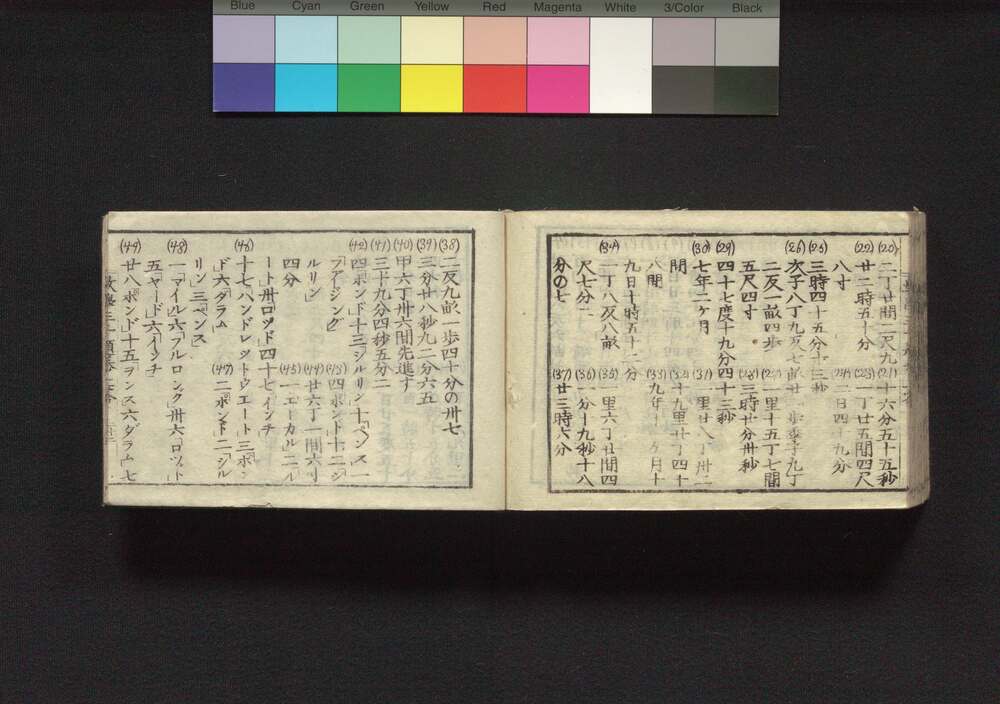 Blue Cyan Green Yellow Red Magenta White 3/Color Black
(20) 二丁廿間二尺九 (21) 十六分五十五秒
(22) 廿二時五十分 (23) 一丁廿五間四尺
八寸 (24) 二日四十九分
(25) 三時四十五分十三秒
(26) 次子八丁九反七畝廿一歩季子九丁
二反一畝四歩 (27) 一里十五丁七間
五尺四寸 (28) 三時廿分卅秒
(29) 四十七度十九分四十三秒
(30) 七年二ケ月 (31) 一里廿八丁卅二
間 (32) 十九里廿丁四十
八間 (33) 九年十一ケ月十
九日十時五十二分
(34) 一丁八反八畝 (35) 一里六丁廿間四
尺七分二 (36) 一分十九秒十八
分の七 (37) 廿三時六分
(38) 二反九畝一歩四十分の卅七
(39) 三分廿八秒九二分六五
(40) 甲六丁卅六間先進す
(41) 三十九分四秒五分二
(42) 四「ポンド」十三「シルリン」十「ペンス」一
「フアージング」 (43) 四「ポンド」十二「シ
ルリン」 (44) 廿六丁一間六寸
四分 (45) 一「エーカル」二「ル
ート」卅「ロッド」四十七「インチ」
(46) 十七「ハンドレットウエート」三「ポン
ド」六「ダラム」 (47) 二「ポンド」二「シル
リン」三「ペンス」
(48) 一「マイル」六「フルロング」卅六「ロッド」
五「ヤード」六「インチ」
(49) 廿八「ポンド」十五「ヲンス」六「ダラム」七